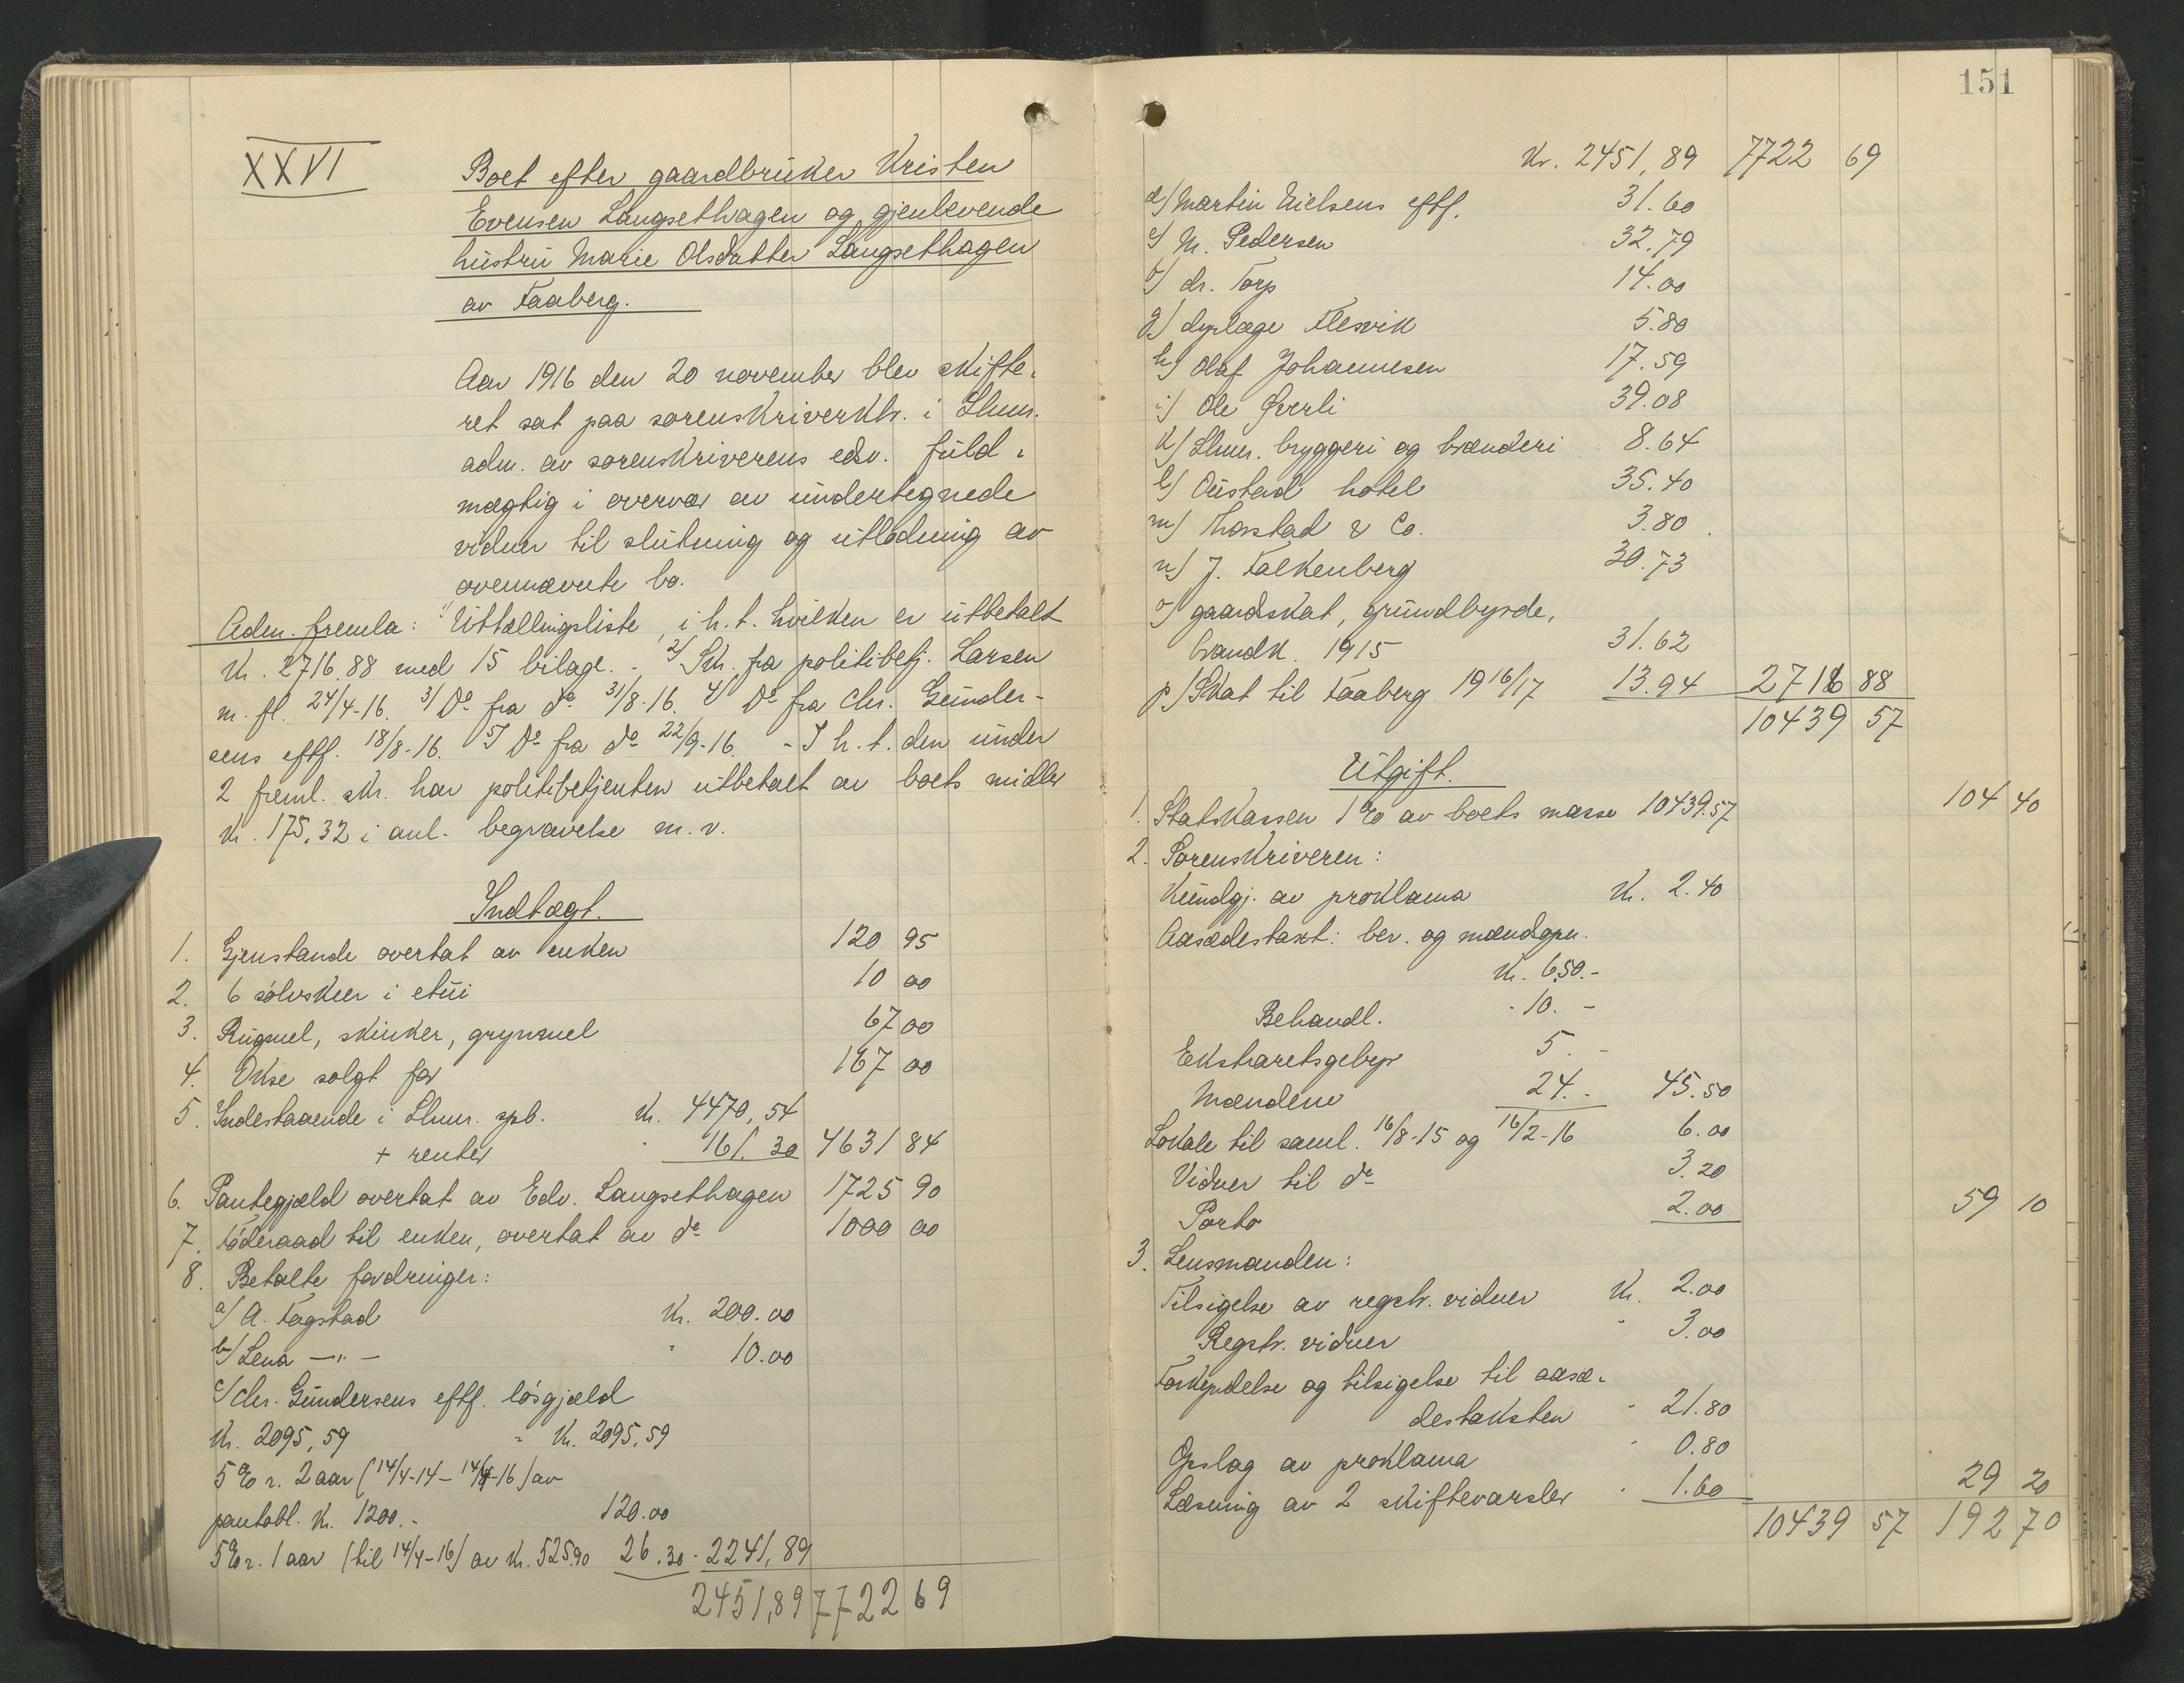 XXVI
Boet efter gaardbruker Kristen
Evensen Langsethagen og gjenlevende
hustru Marie Olsdatter Langsethagen
av Faaberg.
Aar 1916 den 20 november blev skifte-
ret sat paa sorenskriverktr. i Lhmr.
adm. av sorenskriverens edsv. fuld-
mægtig i overvær av undertegnede
vidner til slutning og utlodning av
ovennævnte bo.
Adm. fremla: 1/ Uttællingsliste, i h. t. hvilken er utbetalt
kr. 2716.88 med 15 bilage. - 2/ Skr. fra politibetj. Larsen
m. fl. 24/4-16. 3/ Do fra do 31/8-16. 4/ Do fra Chr. Gunder-
sens eftf. 18/8-16. 5/ Do fra do 22/9-16. - I h. t. den under
2 freml. skr. har politibetjenten utbetalt av boets midler
kr. 175,32 i anl. begravelse m. v.
Indtægt.
1. Gjenstande overtat av enken 120 95
2. 6 sølvskeer i etui 10 00
3. Rugmel, skinker, grynmel 67 00
4. Okse solgt for 167 00
5. Indestaaende i Lhmr. spb. kr. 4470,54
+ renter " 161.30 4631 84
6. Pantegjæld overtat av Edv. Langsethagen 1725 90
7. Føderaad til enken, overtat av do 1000 00
8. Betalte fordringer:
a/ A. Fagstad kr. 200.00
b/ Lena —"— " 10.00
c/ Chr. Gundersens eftf. løsgjæld
kr. 2095,59 " kr. 2095,59
5 % r. 2 aar (14/4-14 - 14/4-16) av
pantobl. kr. 1200.- 120.00
5% r. 1 aar (til 14/4-16) av kr. 525.90 26.30 - 2241,89
2451,89 7722 69
151
Kr. 2451,89 7722 69
d/ Martin Nielsens eftf. 31.60
e/ M. Pedersen 32.79
f/ dr. Torp 14.00
g/ dyrlæge Flesvik 5.80
h/ Olaf Johannesen 17.59
i/ Ole Øverli 39.08
k/ Lhmr. bryggeri og brænderi 8.64
l/ Onstad hotel 35.40
m/ Thorstad & Co. 3.80
n/ J. Falkenberg 30.73
o/ gaardskat, grundbyrde,
brandk. 1915 31.62
p/ Skat til Faaberg 1916/17 13.94 2716 88
10439 57
Utgift.
1. Statskassen 1 % av boets masse 10439.57 104 40
2. Sorenskriveren:
Kundgj. av proklama kr. 2.40
Aasædestakst: ber. og mændsopn.
kr. 6.50.-
Behandl. - 10. -
Ekstraretsgebyr 5. -
Mændene 24. - 45.50
Lokale til saml. 16/8-15 og 16/2-16 6.00
Vidner til do 3.20
Porto 2.00 59 10
3. Lensmanden:
Tilsigelse av regstr. vidner kr. 2.00
Regstr. vidner " 3.00
Forkyndelse og tilsigelse til aasæ-
destaksten " 21.80
Opslag av proklama " 0.80
Læsning av 2 skiftevarsler " 1.60 29 20
10439 57 192 70